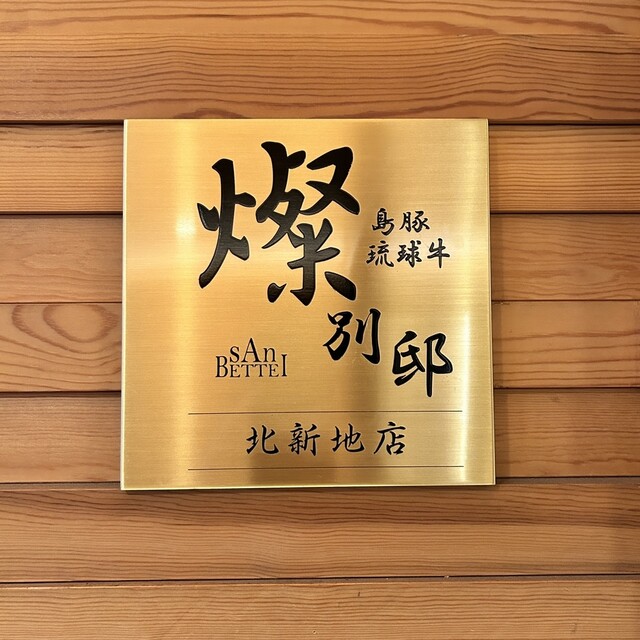 燦
島豚
琉球牛
別邸
sAn
BETTEI
北新地店